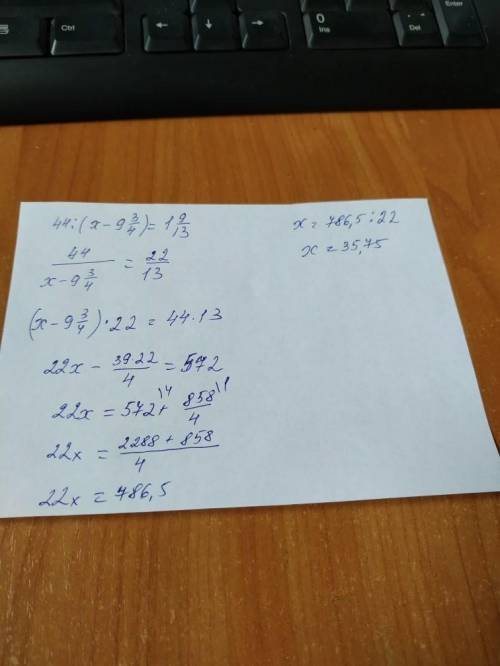 Ctrl
←
↓
→
0
Ins
.
Del
Enter
44 : (x - 9 3/4) = 1 9/13
44/(x - 9 3/4) = 22/13
(x - 9 3/4) · 22 = 44 · 13
22x - 39·22/4 = 572
22x = 572\4 + 858\1/4
22x = 2288 + 858/4
22x = 786,5
x = 786,5 : 22
x = 35,75